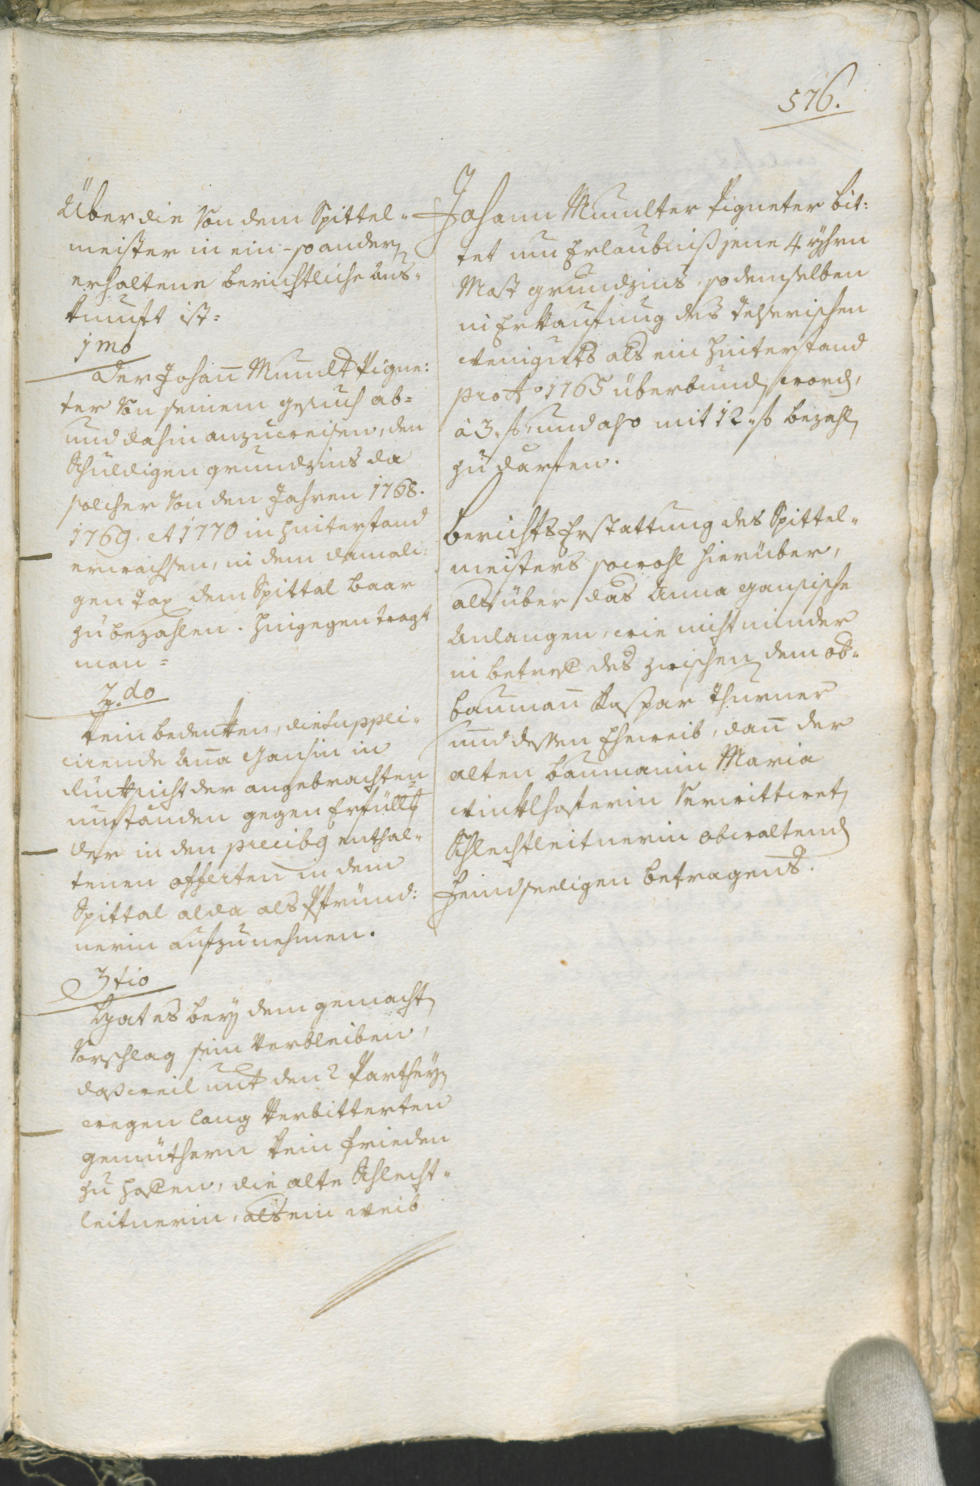 576.
Über die von dem Spittel-
meister in ein- so andern
erhaltene berichtliche Aus-
kunfft ist:
1mo
Der Johann Pigne:
ter von seinem gesuch ab-
und dahin anzuweisen, den
schuldigen grundzins da
solcher von den Jahren 1768.
1769. et 1770 in hinterstand
erwachsen, in dem damali-
gen Tax dem Spittal baar
zu bezahlen. hingegen tragt
man =
2.do
kein bedenken, die suppli-
cirende Anna Gansin in
der angebrachten
umständen gegen Erfüllg
der in den precibus enthal-
tenen offerten in dem
Spittal alda als Pfründ:
nerin aufzunehmen.
3tio
Hat es bey dem gemachten
vorschlag sein verbleiben,
dass weil mit den 2 Partheyen
wegen lang verbitterten
gemüthern kein frieden
zu hoffen, die alte Schlecht-
leitnerin, als ein weib
Johann Pigneter bit:
tet um Erlaubniß jene 4 yhrn
Most grundzins so demselben
in Erkaufung des
weinguets als ein hinterstand
pro Ao 1765 überbunden worden,
à 3. f. und also mit 12. f. bezahlen
zu därfen.
Berichts Erstattung des Spittel-
meisters sowohl hierüber,
als über das Anna Gansische
Anlangen, wie nicht minder
in betreff des zwischen dem ob-
baumann Kaspar Thurner
und dessen Eheweib, dann der
alten baumannin Maria
verwittweten
Schlechtleitnerin obwaltenden
feindseeligen betragens.